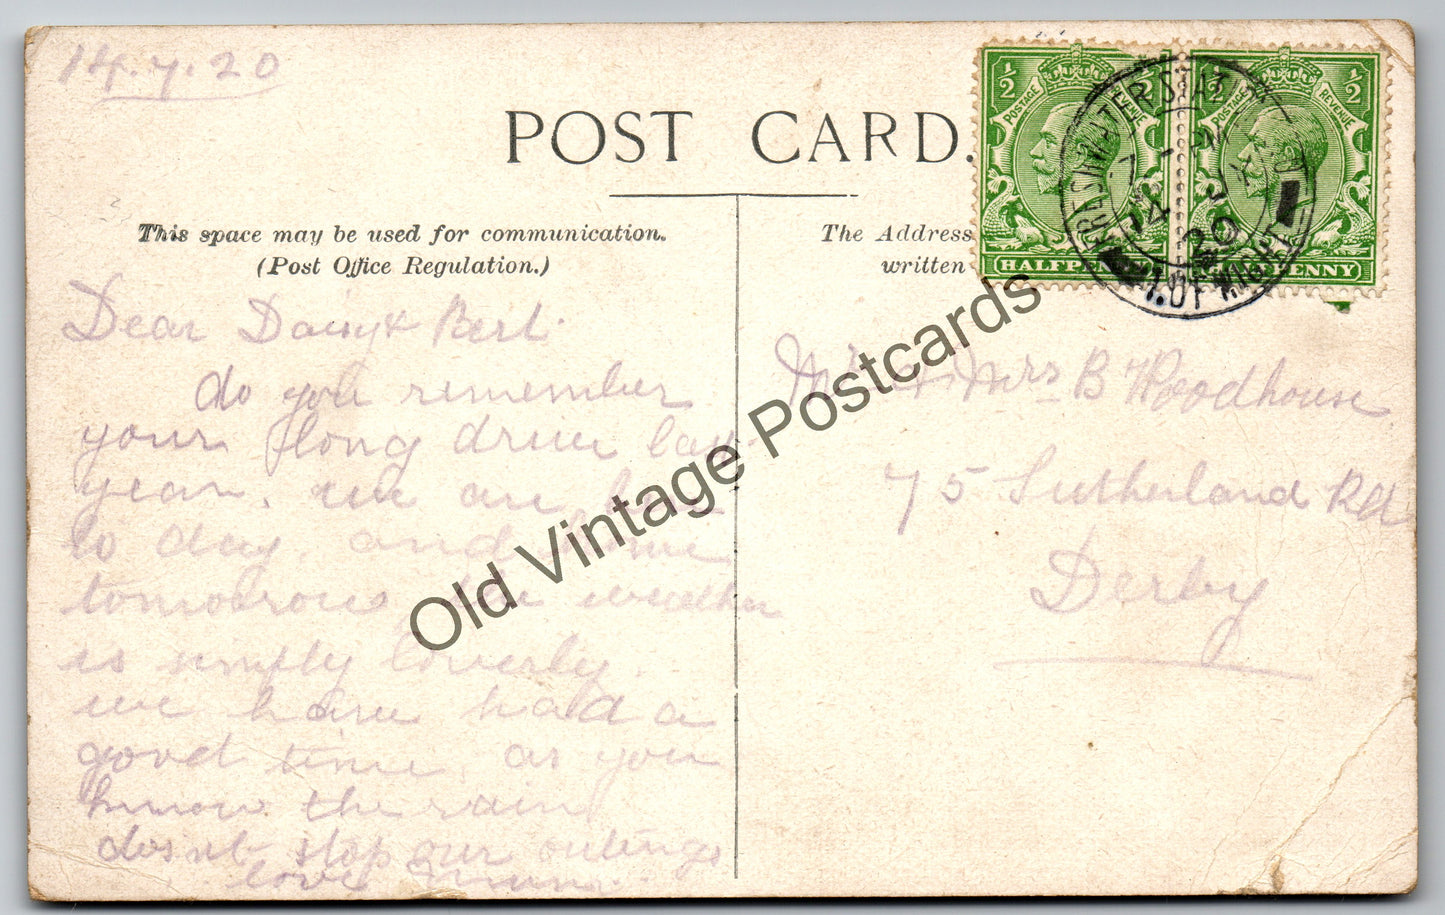 14.7.20
POST CARD.
This space may be used for communication.
(Post Office Regulation.)
The Address
written
½ ½
POSTAGE REVENUE
HALFPENNY
½ ½
POSTAGE REVENUE
HALFPENNY
FRESHWATER STATION
14 JY
20
I. OF WIGHT
Dear Daisy & Bert.
do you remember
your long drive last
year. we are here
to day. and home
tomorrow the weather
is simply loverly
we have had a
good time, as you
know the rain
does'nt stop our outings
love
Mr & Mrs B Woodhouse
75 Sutherland Rd
Derby
Old Vintage Postcards